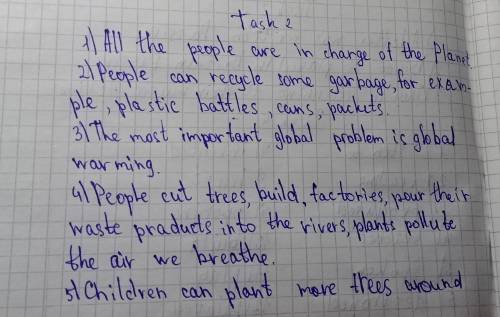 Task 2
1) All the people are in charge of the Planet
2) People can recycle some garbage, for exam-
ple, plastic battles, cans, packets.
3) The most important global problem is global
warming.
4) People cut trees, build, factories, pour their
waste praducts into the rivers, plants pollute
the air we breathe.
5) Children can plant more trees around